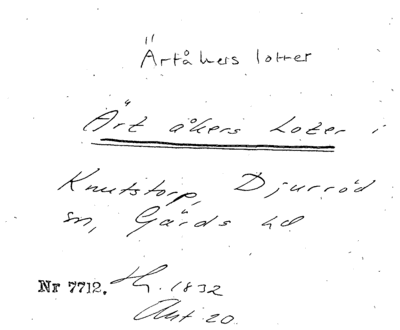 Ärtåkers lotter
Ärt åkers Lozer i
Knutstorp, Djurröd
sn, Gärds hd
Nr 7712. H. 1832
Akt 20